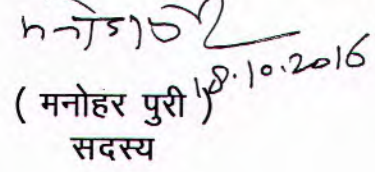 18.10.2016
( मनोहर पुरी )
सदस्य